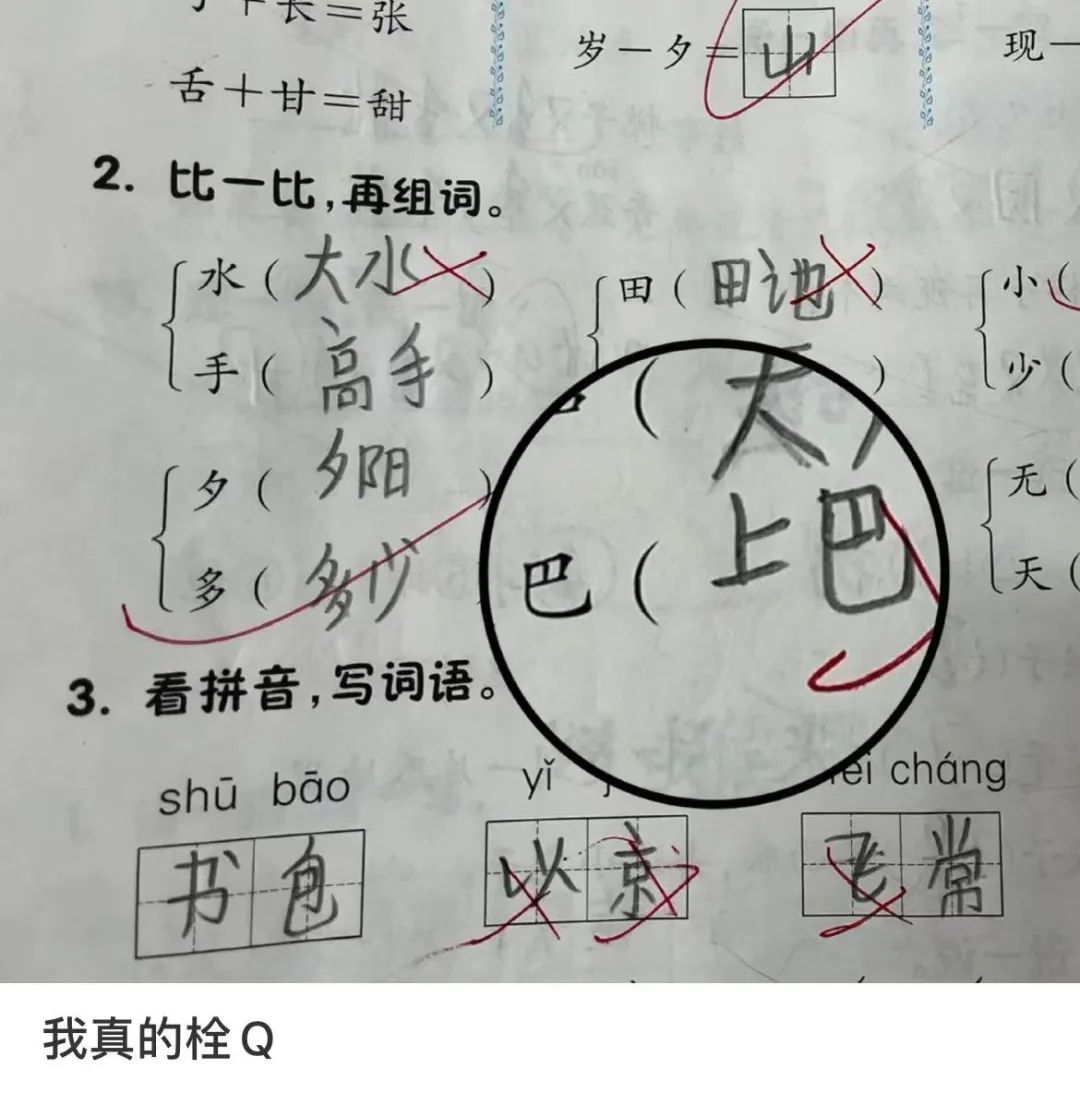 长＝张
舌＋甘＝甜
岁－夕＝山
现－
2. 比一比，再组词。
水（大水）
田（田地）
小（
手（高手）
（天
少（
夕（夕阳）
无（
多（多少
巴（上巴
天（
3. 看拼音，写词语。
shū bāo
yǐ
ēi cháng
书包
以京
飞常
我真的栓Q